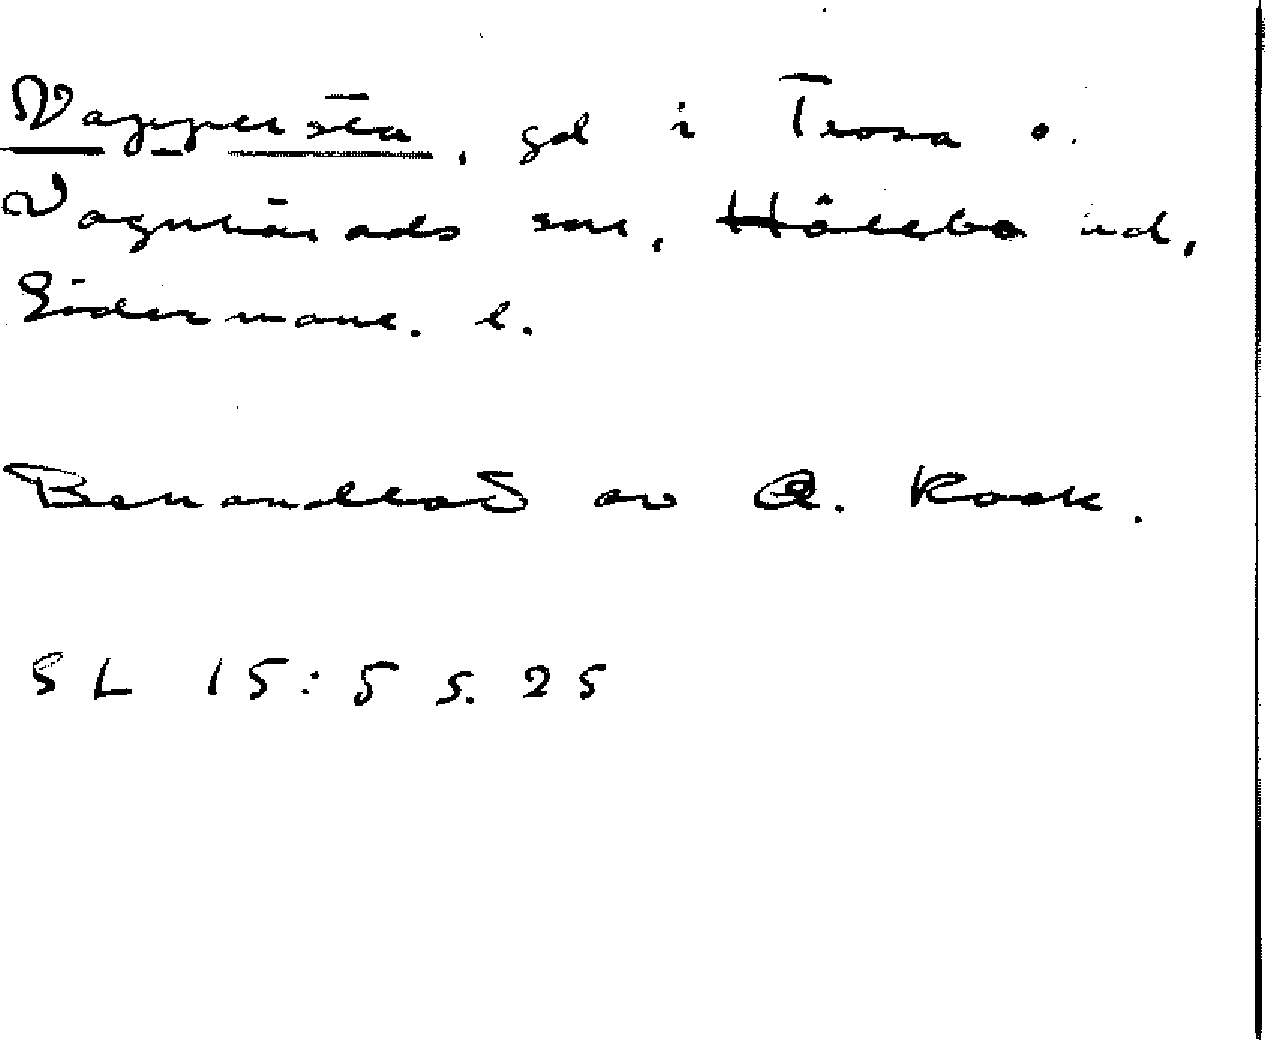 Vappersta, gd i Trosa o.
Vagnhärads snr, Hölebo hd,
Södermanl. l.
Behandlad av A. Kock.
SL 15:5 s. 25